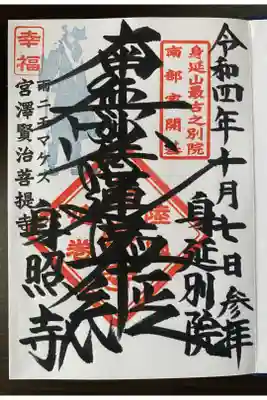 令和四年十月七日 参拝
身延山最古之別院
南部家開基
身延別院
南無妙法蓮華経
幸福
雨ニモマケズ
宮澤賢治菩提寺
身照寺